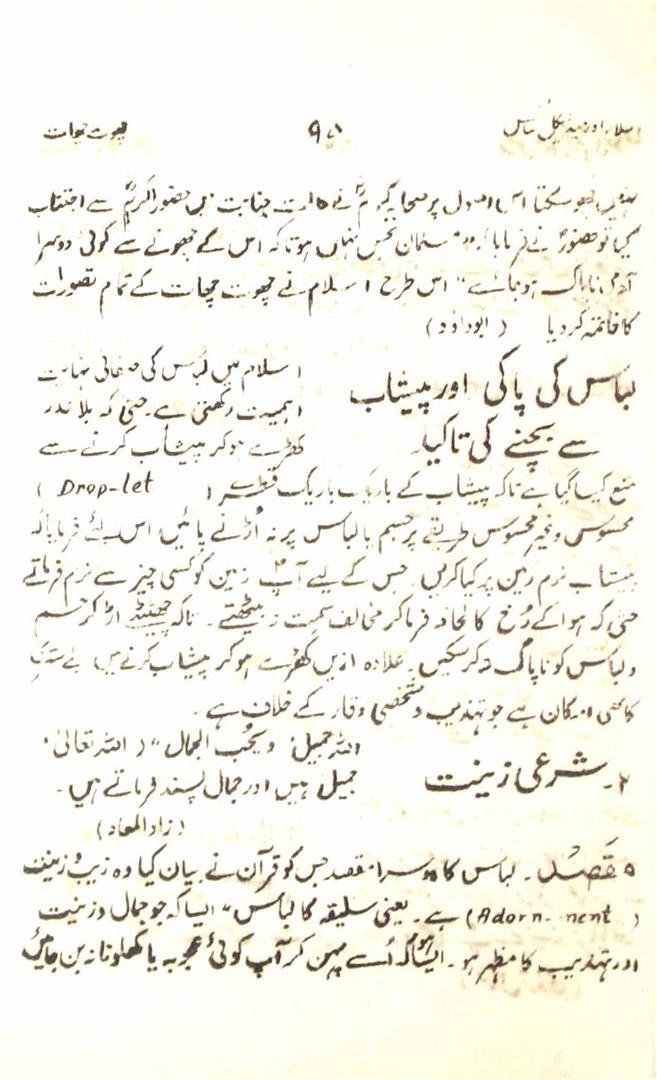 اسلام اور میڈیکل سائنس ۹۸ چھوت چھات
نہیں چھو سکتا اس اصول پر صحابہ کرامؓ نے حالت جنابت میں حضور اکرمؐ سے اجتناب
کیں تو حضورؐ نے فرمایا کہ "مسلمان نجس نہیں ہوتا کہ اس کے چھونے سے کوئی دوسرا
آدمی ناپاک ہو جائے" اس طرح اسلام نے چھوت چھات کے تمام تصورات
کا خاتمہ کر دیا (ابوداؤد)
لباس کی پاکی اور پیشاب
سے بچنے کی تاکید
اسلام میں لباس کی صفائی نہایت
اہمیت رکھتی ہے۔ حتیٰ کہ بلا عذر
کھڑے ہو کر پیشاب کرنے سے
منع کیا گیا ہے تاکہ پیشاب کے باریک باریک قطرے (Drop-let)
محسوس و غیر محسوس طریقے پر جسم یا لباس پر نہ اُڑنے پائیں اس لئے فرمایا کہ
پیشاب نرم زمین پر کیا کریں۔ جس کے لیے آپؐ زمین کو کسی چیز سے نرم فرماتے
حتیٰ کہ ہوا کے رُخ کا لحاظ فرما کر مخالف سمت نہ بیٹھتے۔ تاکہ چھینٹے اڑ کر جسم
و لباس کو ناپاک نہ کر سکیں۔ علاوہ ازیں کھڑے ہو کر پیشاب کرنے میں بے ستری
کا بھی امکان ہے جو تہذیب و شخصی وقار کے خلاف ہے۔
۲۔ شرعی زینت
اللہ جمیل و یحب الجمال" (اللہ تعالیٰ
جمیل ہیں اور جمال پسند فرماتے ہیں۔
(زاد المعاد)
مقصد۔ لباس کا دوسرا مقصد جس کو قرآن نے بیان کیا وہ زیب و زینت
(Adorn- nent) ہے۔ یعنی سلیقہ کا لباس، ایسا کہ جو جمال و زینت
اور تہذیب کا مظہر ہو۔ ایسا نہ ہو کہ اُسے پہن کر آپ کوئی عجوبہ یا کھلونا نہ بن جائیں